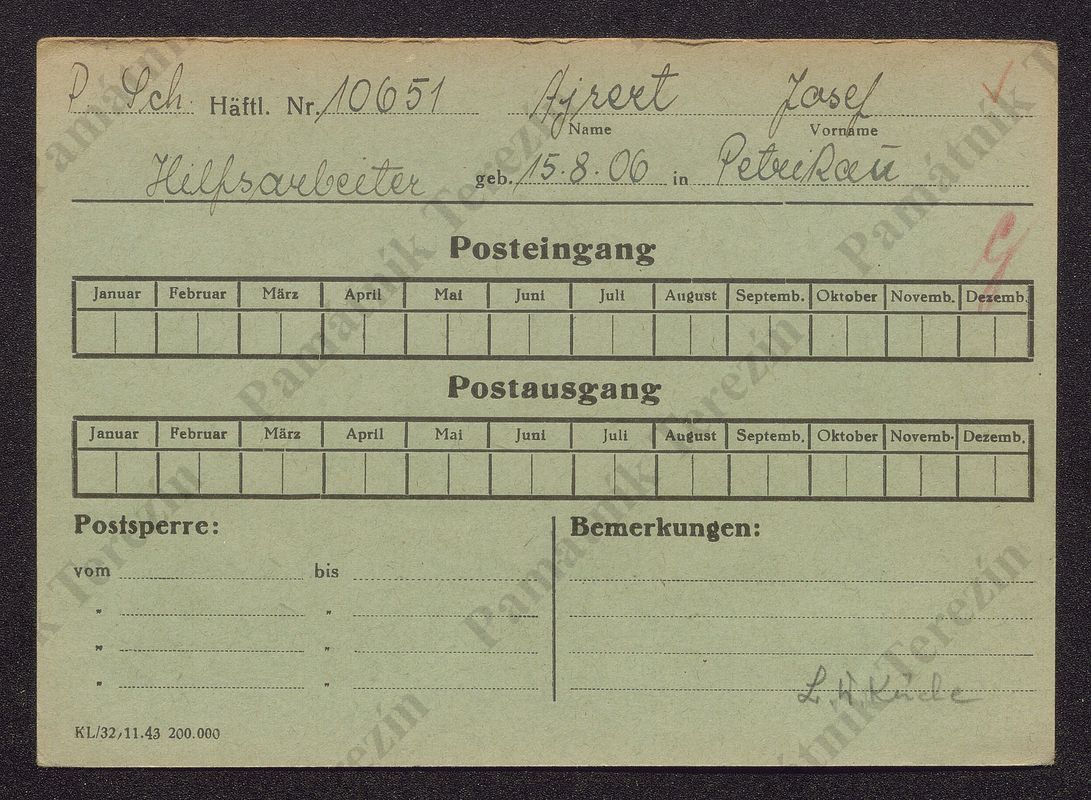 P. Sch. Häftl. Nr. 10651 Ajrert Josef
Name Vorname
Hilfsarbeiter geb. 15.8.06 in Petrikau
Posteingang
Januar Februar März April Mai Juni Juli August Septemb. Oktober Novemb. Dezemb.
Postausgang
Januar Februar März April Mai Juni Juli August Septemb. Oktober Novemb. Dezemb.
Postsperre: Bemerkungen:
vom bis
" "
" "
" "
L. W.
KL/32, 11.43 200.000
Památník Terezín